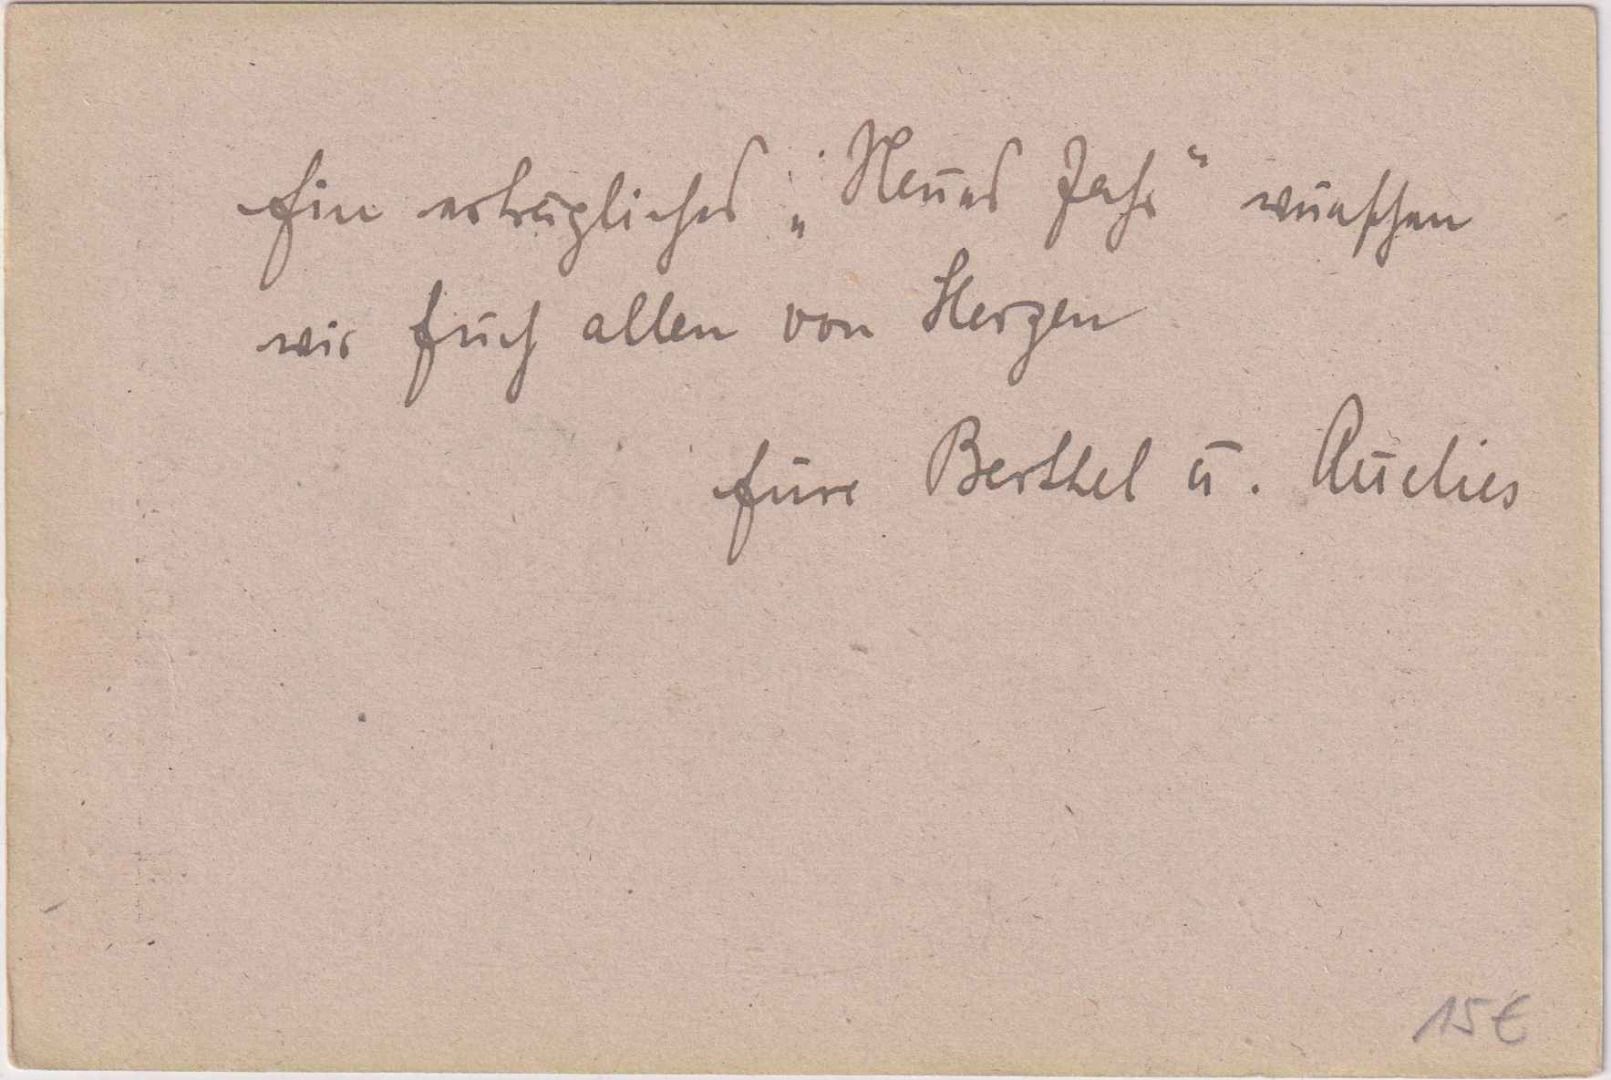 Ein erträgliches „Neues Jahr“ wünschen
wir Euch allen von Herzen
Eure Berthel u.
15€